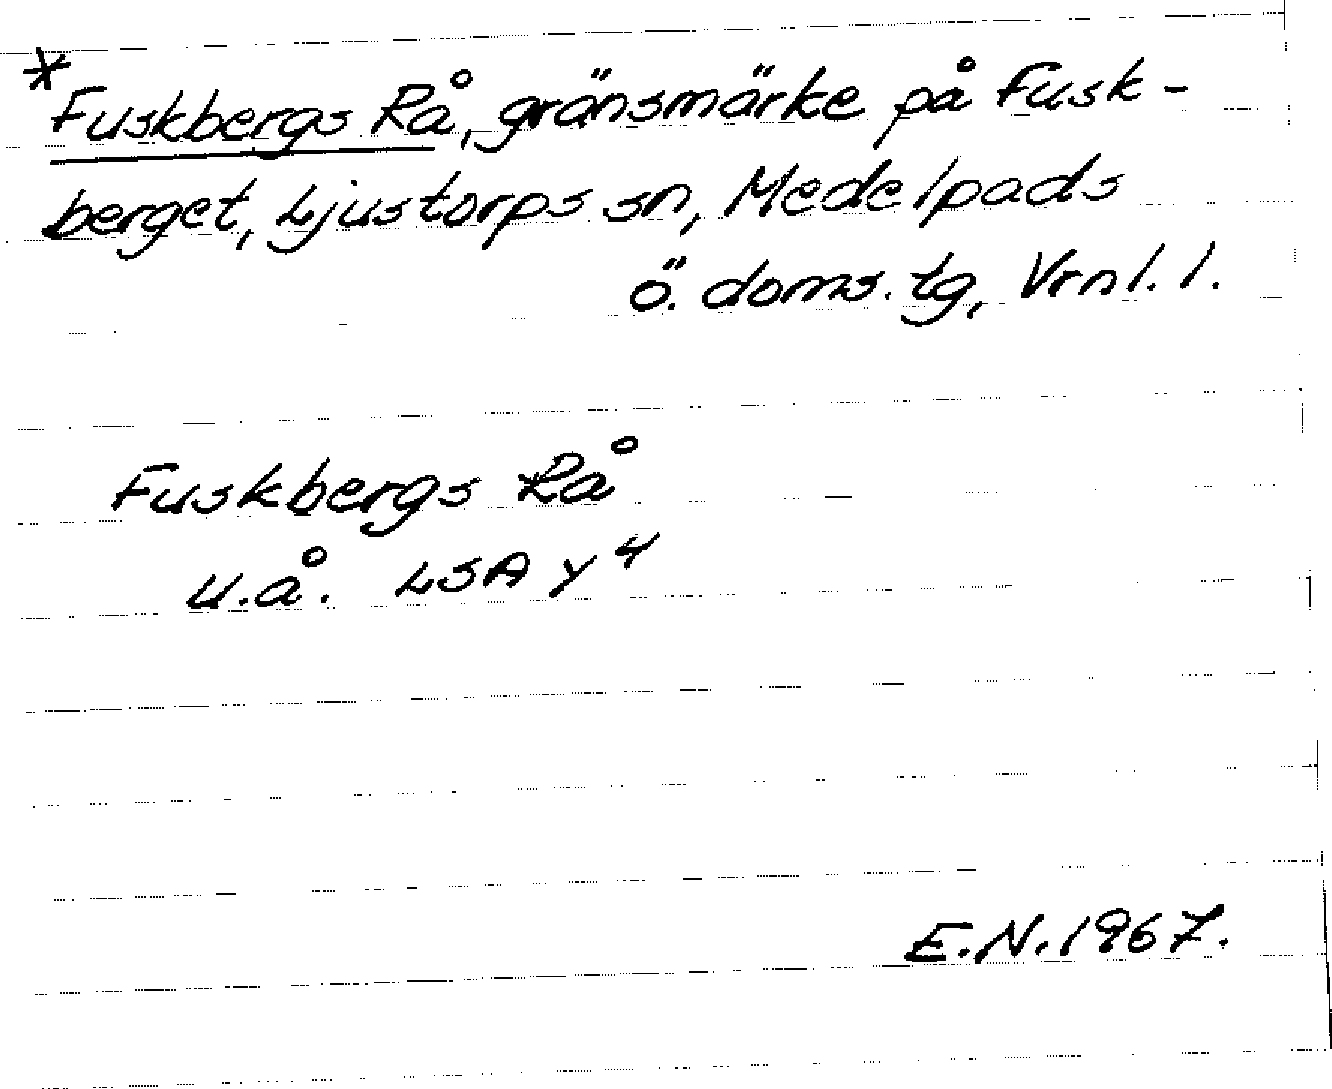 *Fuskbergs Rå, gränsmärke på Fusk-
berget, Ljustorps sn, Medelpads
ö. doms. tg, Vrnl. l.
Fuskbergs Rå
u.å. LSA Y 4
E.N. 1967.